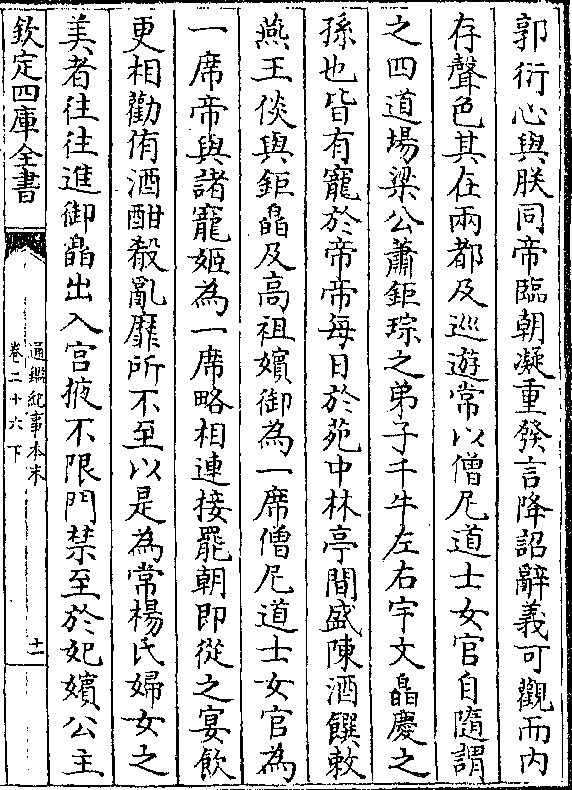 郭衍心與朕同帝臨朝凝重發言降詔辭義可觀而内
存聲色其在兩都及巡遊常以僧尼道士女官自隨謂
之四道場梁公蕭鉅琮之弟子千牛左右宇文皛慶之
孫也皆有寵於帝帝每日於苑中林亭間盛陳酒饌敕
燕王倓與鉅皛及高祖嬪御為一席僧尼道士女官為
一席帝與諸寵姬為一席略相連接罷朝即從之宴飲
更相勸侑酒酣殽亂靡所不至以是為常楊氏婦女之
美者往往進御皛出入宫掖不限門禁至於妃嬪公主
欽定四庫全書
通鑑紀事本末
卷二十六下
十一